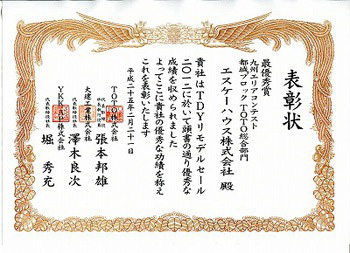 表彰状
最優秀賞
九州エリアコンテスト
都城ブロックTOTO総合部門
エスケーハウス株式会社 殿
貴社はTDYリモデルセール
二〇一二に於いて頭書の通り優秀な
成績を収められました
よってここに貴社の優秀な功績を称え
これを表彰いたします
平成二十五年二月二十一日
TOTO株式会社
張本邦雄
大建工業株式会社
澤木良次
YKK AP株式会社
堀 秀充